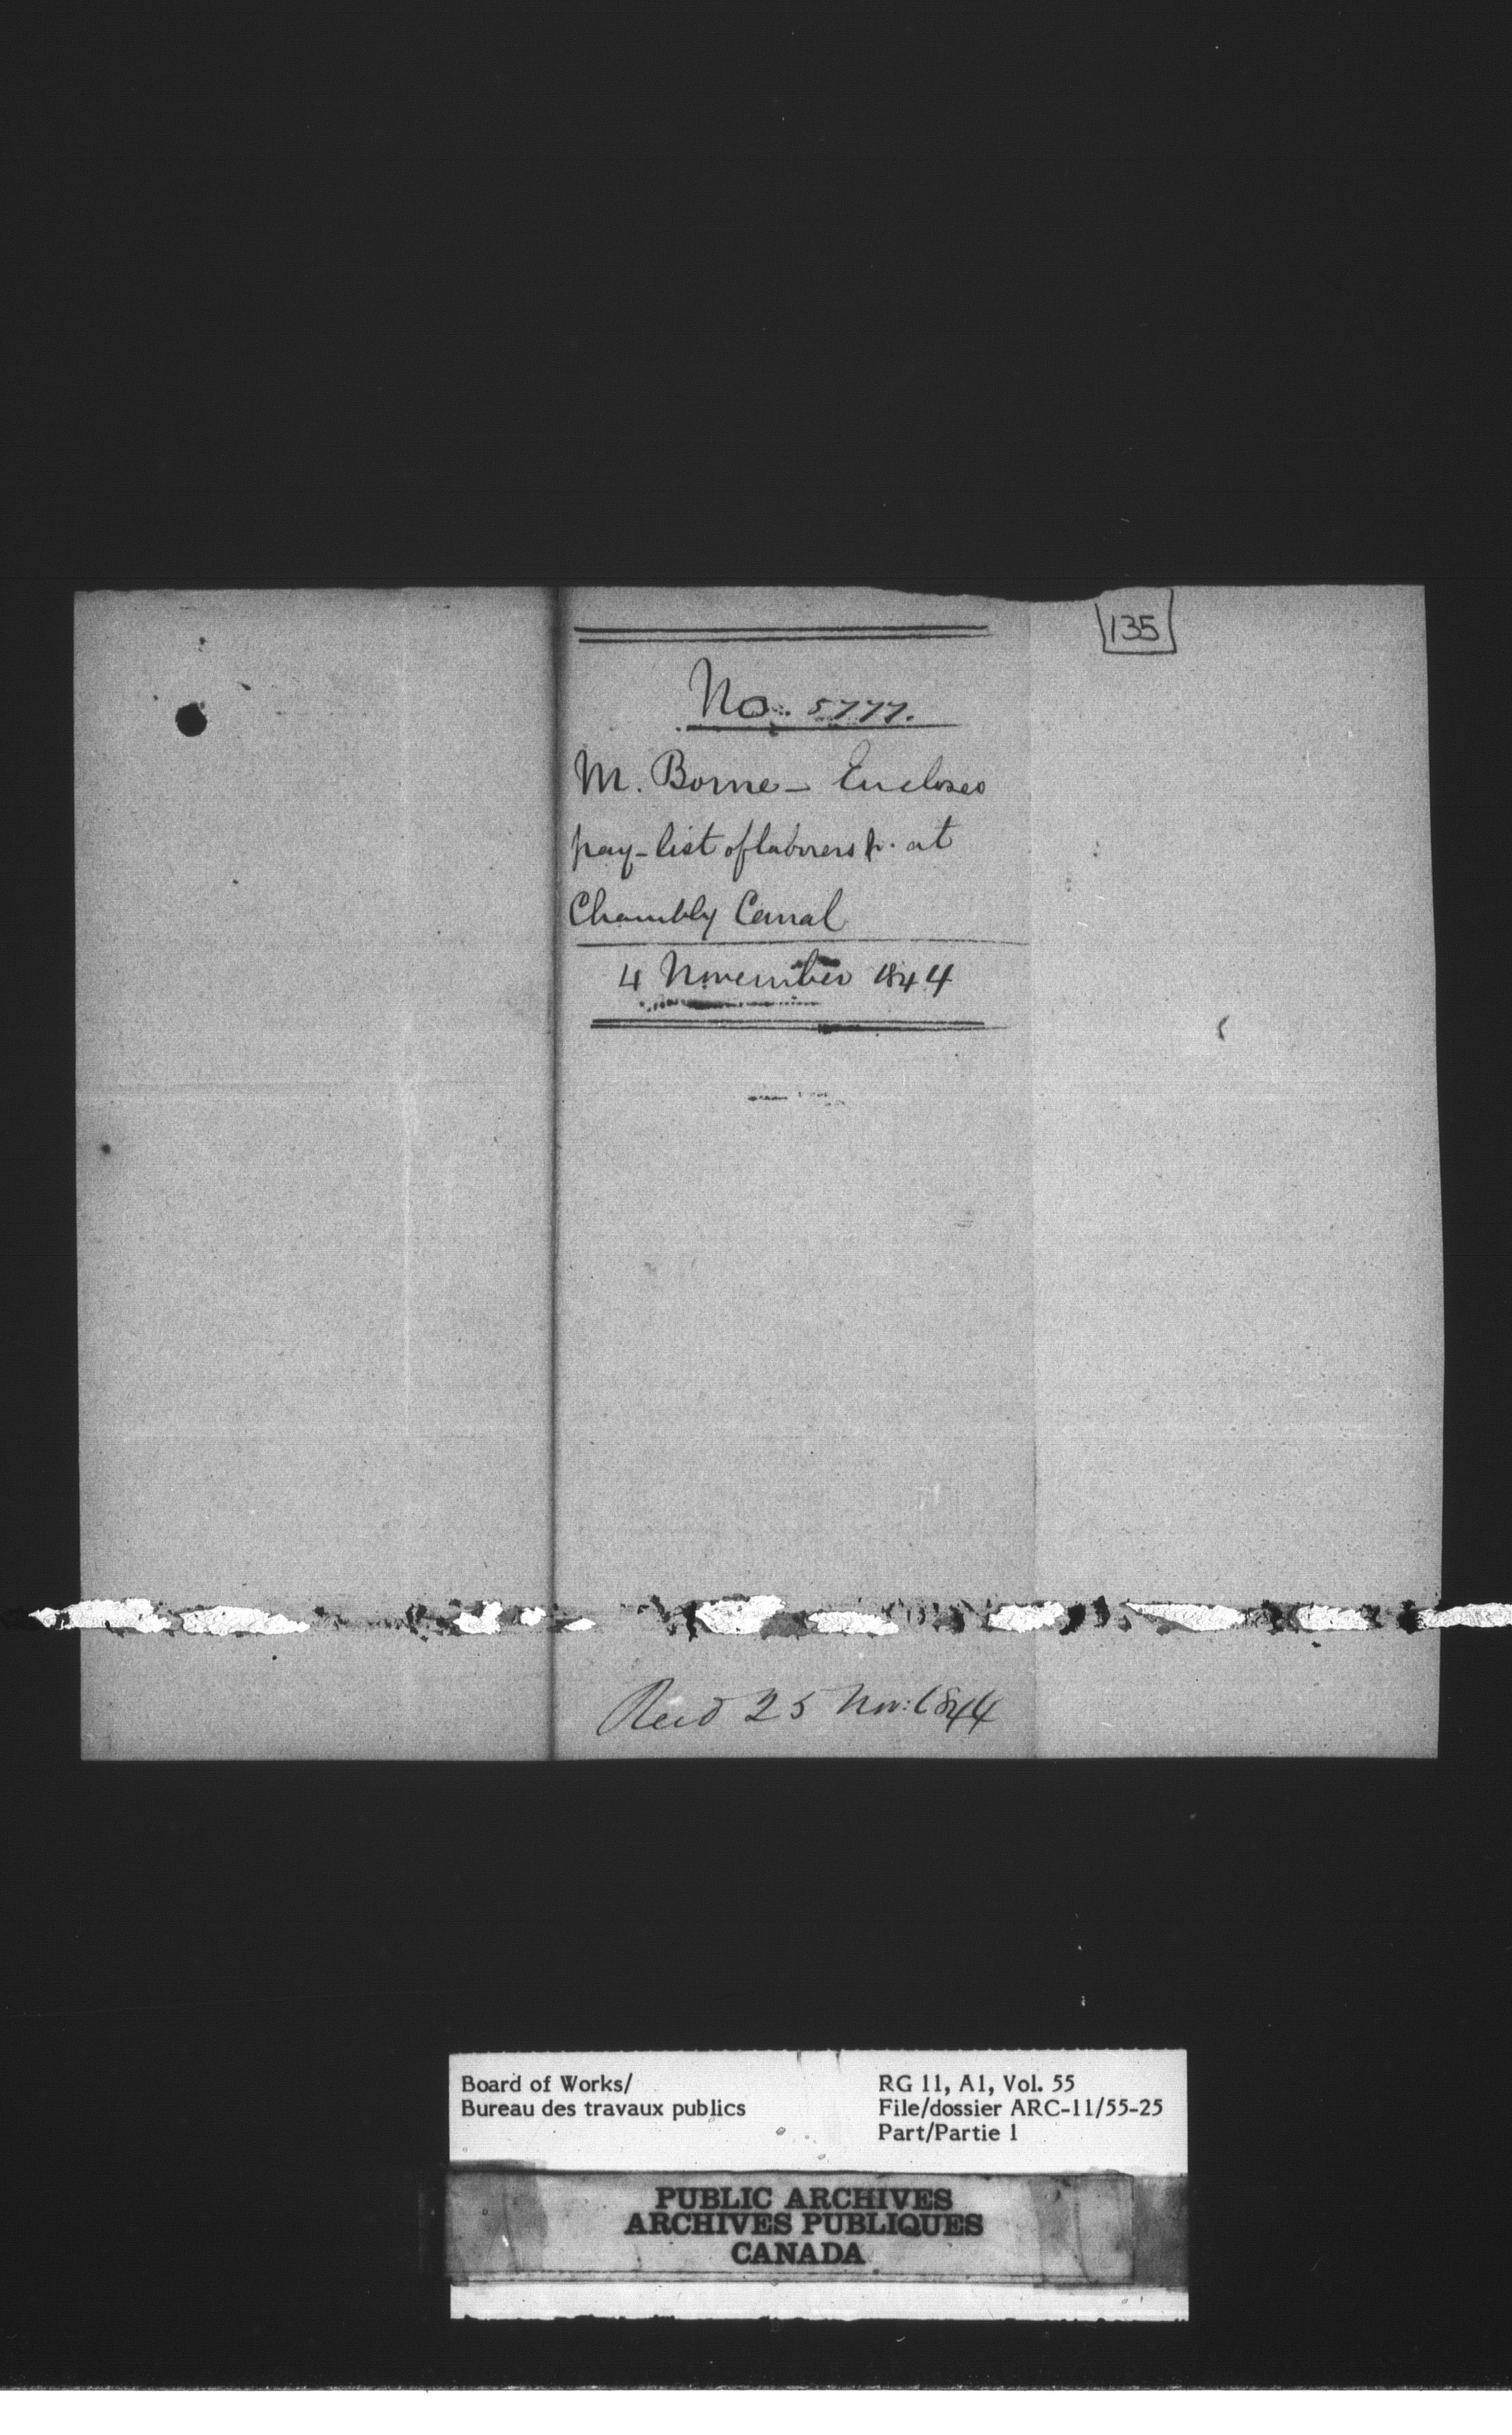 135
No. 5777.
M. Borne - Encloses
pay-list of laborers &c. at
Chambly Canal
4 November 1844
Recd 25 Nov: 1844
Board of Works/
Bureau des travaux publics
RG 11, A1, Vol. 55
File/dossier ARC-11/55-25
Part/Partie 1
PUBLIC ARCHIVES
ARCHIVES PUBLIQUES
CANADA